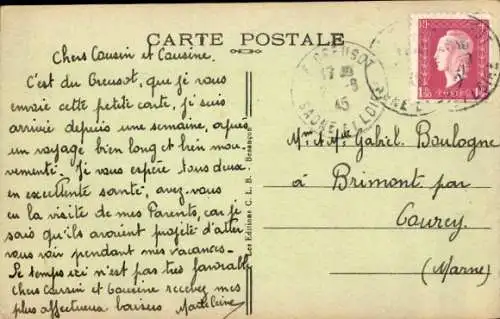 CARTE POSTALE
Chers Cousin et Cousine.
C'est du Creusot, que je vous
envoie cette petite carte, je suis
arrivée depuis une semaine, après
un voyage bien long et bien mou-
vementé. Je vous espère tous deux
en excellente santé, avez-vous
eu la visite de mes Parents, car je
sais qu'ils avaient projeté d'aller
vous voir pendant mes vacances.
Le temps ici n'est pas très favorable
Chers Cousin et Cousine recevez mes
plus affectueux baisers Madeleine
Les Editions C. L. B. Besançon
LE CREUSOT
17
8
45
SAONE ET LOIRE
Mr et Mme Gabriel Boulogne
à Brimont par
Courcy
(Marne)